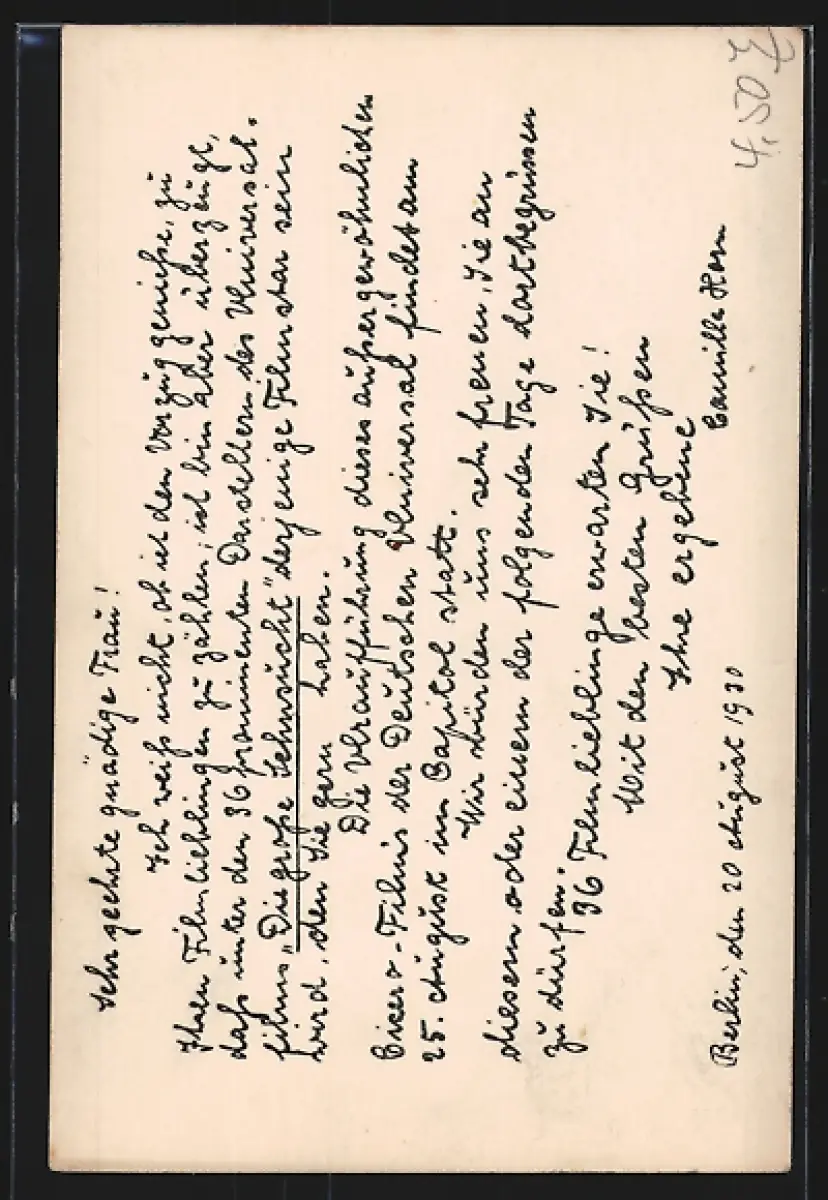 Sehr geehrte gnädige Frau!
Ich weiß nicht, ob ich den Vorzug genieße, zu
Ihren Filmlieblingen zu zählen; ich bin aber überzeugt,
daß unter den 36 prominenten Darstellern des Universal-
films „Die große Sehnsucht" derjenige Filmstar sein
wird, den Sie gern haben.
Die Uraufführung dieses außergewöhnlichen
Cicero-Films der Deutschen Universal findet am
25. August im Capitol statt.
Wir würden uns sehr freuen, Sie an
diesem oder einem der folgenden Tage dort begrüssen
zu dürfen.
36 Filmlieblinge erwarten Sie!
Mit den besten Grüßen
Ihre ergebene
Camilla Horn
Berlin, den 20 August 1930
4,50